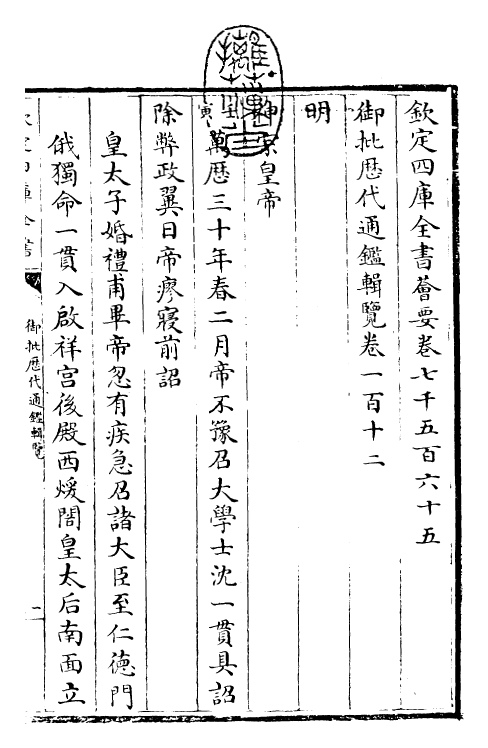 欽定四庫全書薈要卷七千五百六十五
御批歴代通鑑輯覽卷一百十二
明
神宗皇帝
壬寅萬歴三十年春二月帝不豫召大學士沈一貫具詔
除弊政翼日帝瘳寢前詔
皇太子婚禮甫畢帝忽有疾急召諸大臣至仁徳門
俄獨命一貫入啟祥宫後殿西煖閤皇太后南面立
御批歴代通鑑輯覽